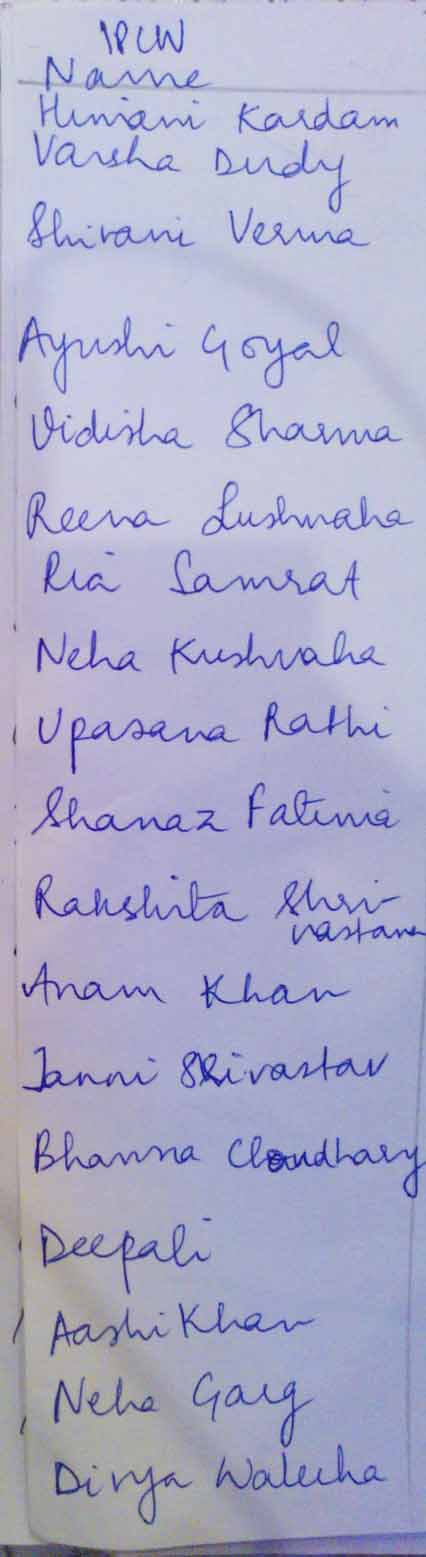 IPCW
Name
Himani Kardam
Varsha
Shivani Verma
Ayushi Goyal
Vidisha Sharma
Reena Kushwaha
Ria Samrat
Neha Kushwaha
Upasana Rathi
Shanaz Fatima
Rakshita Shri-
vastava
Anam Khan
Srivastav
Bhawna Choudhary
Deepali
Aashi Khan
Neha Garg
Divya Walecha